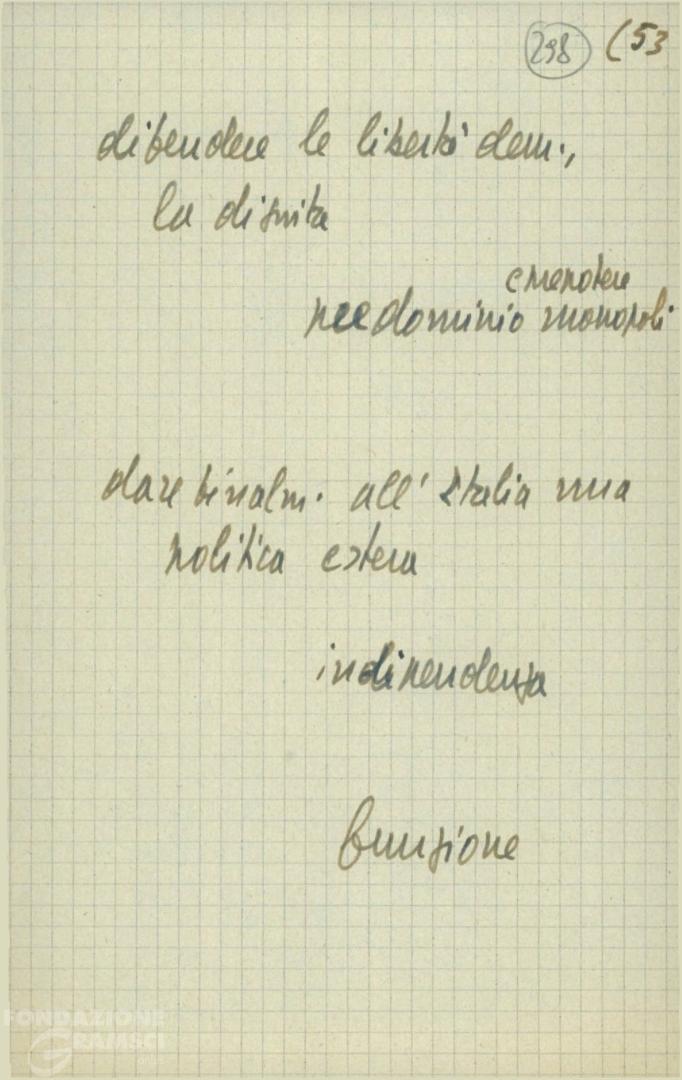 298 (53
difendere le libertà dem.,
la dignità
e prepotere
predominio monopoli
dare finalm. all'Italia una
politica estera
indipendenza
funzione
FONDAZIONE
GRAMSCI